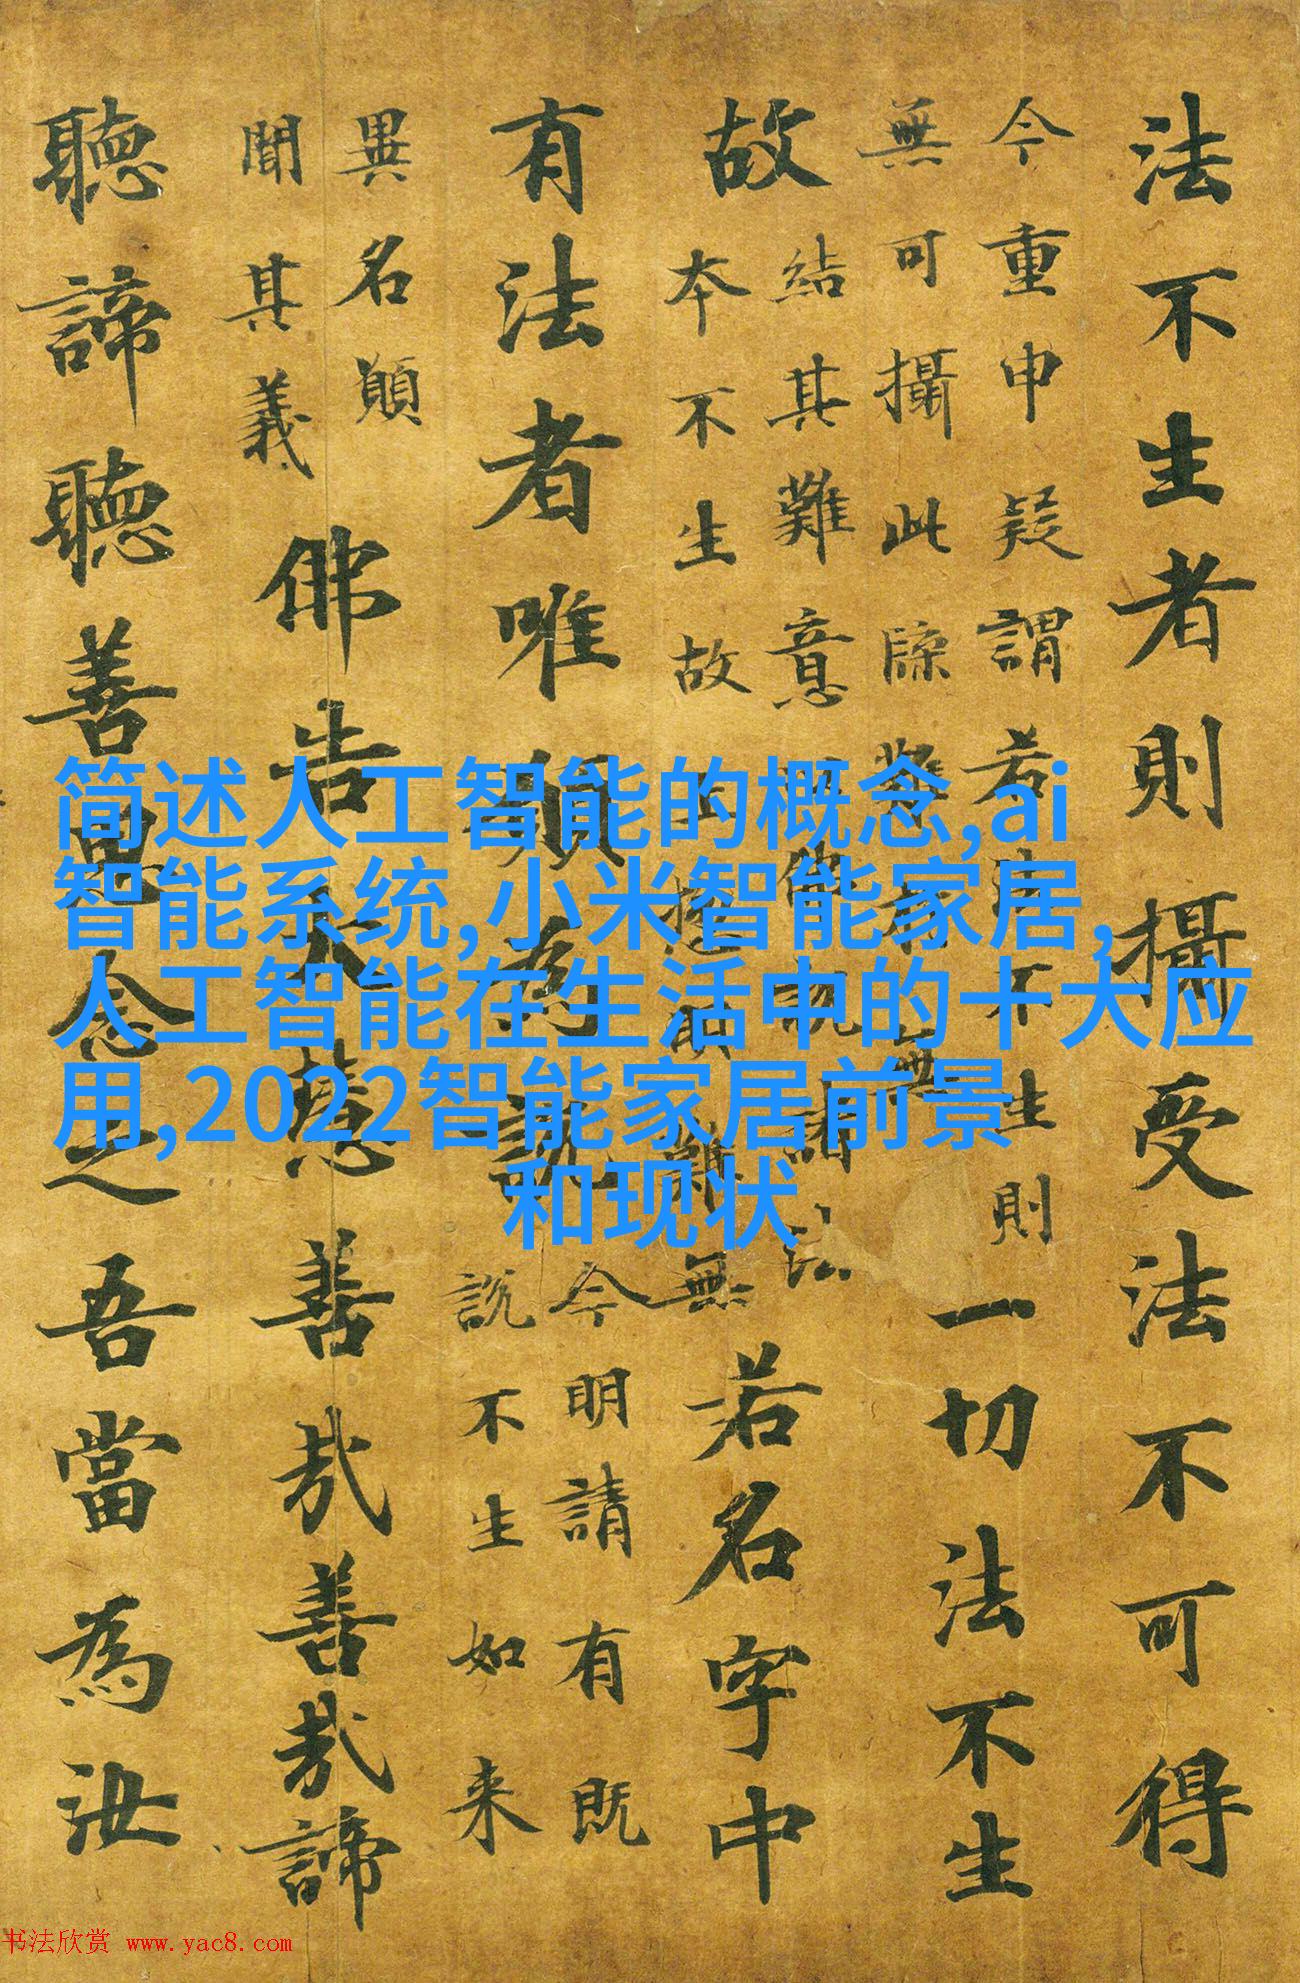 法不生者則攝受法不可得
今重申疑謂若法不生則
無可攝此牒難有無
一切法不生
結其難意
諸法
故
本不生故
難無
若名字中
有法者唯
今明請有既
說不生如来
異名願
聞其義
佛告大慧善哉善哉諦
聽諦聽善思念之吾當為汝
简述人工智能的概念,ai
智能系统,小米智能家居,
人工智能在生活中的十大应
用,2022智能家居前景
和现状
书法欣赏 www.yac8.com